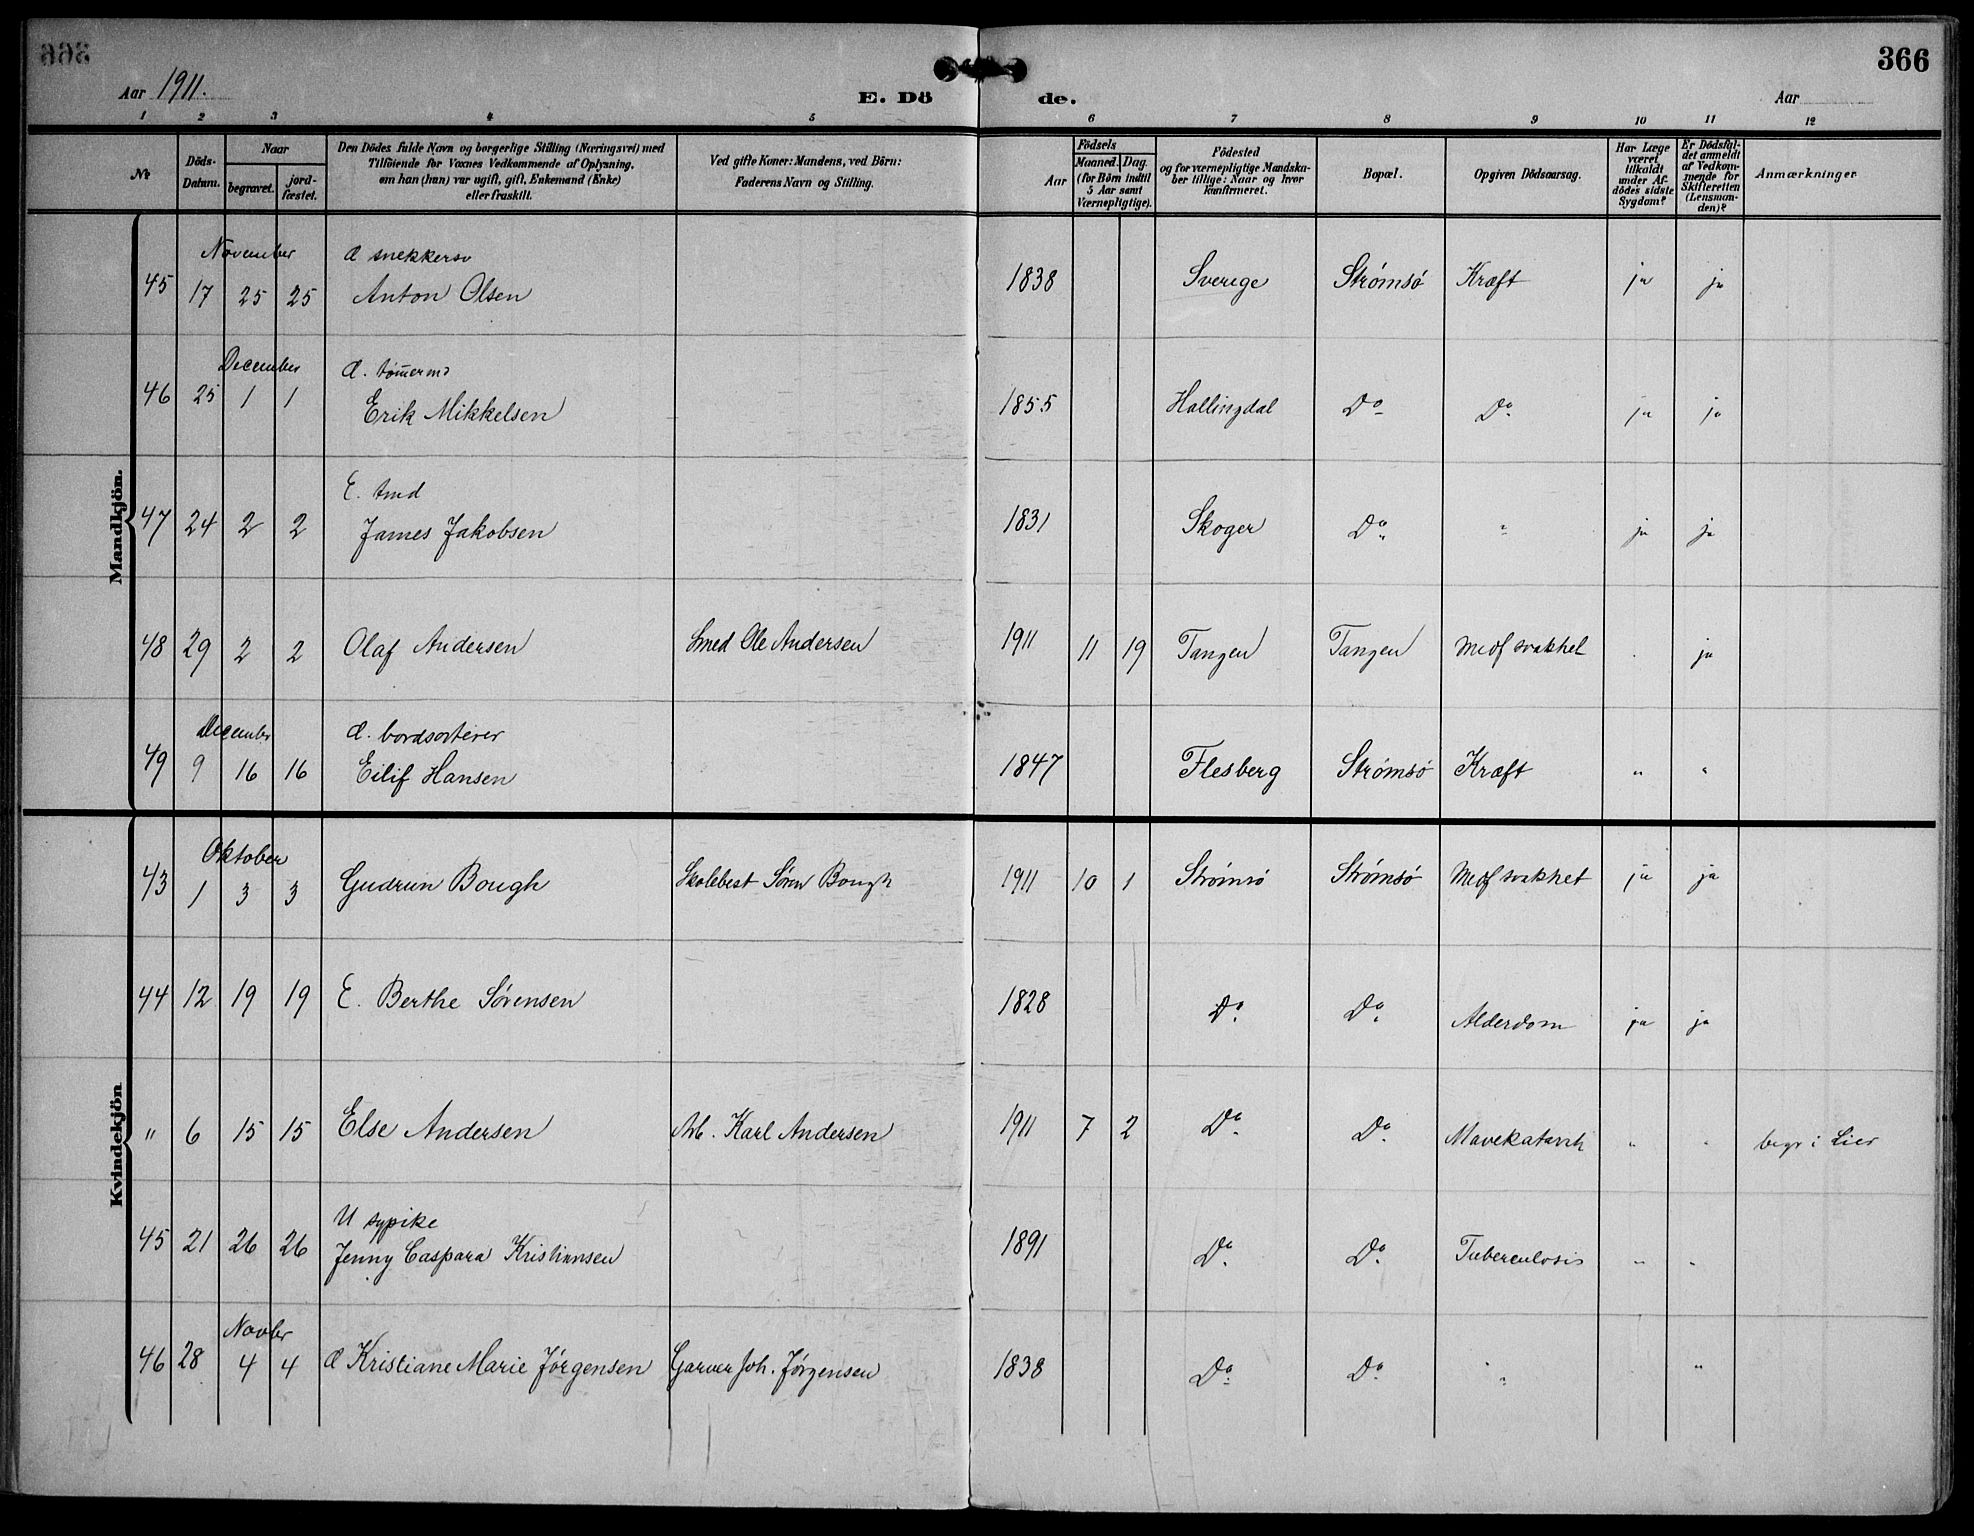 366
Aar 1911.
E. Döde.
Aar
1 2 3 4 5 6 7 8 9 10 11 12
No
Döds-Datum.
Naar
begravet.
jord-fæstet.
Den Dödes fulde Navn og borgerlige Stilling (Næringsvei) med
Tilföiende for Voxnes Vedkommende af Oplysning,
om han (hun) var ugift, gift, Enkemand (Enke)
eller fraskilt.
Ved gifte Koner: Mandens, ved Börn:
Faderens Navn og Stilling.
Födsels
Aar
Maaned. Dag.
(for Börn indtil
5 Aar samt
Værnepligtige).
Födested
og for værnepligtige Mandska-
ber tillige: Naar og hvor
konfirmeret.
Bopæl.
Opgiven Dödsaarsag.
Har Læge
været
tilkaldt
under Af-
dödes sidste
Sygdom?
Er Dödsfal-
det anmeldt
af Vedkom-
mende for
Skifteretten
(Lensman-
den)?
Anmærkninger
Mandkjön.
November
45 17 25 25 Anton Olsen 1838 Sverige Strømsø Kræft ja ja
December
46 25 1 1 Erik Mikkelsen 1855 Hallingdal Do Do ja ja
E. tmd
47 24 2 2 James Jakobsen 1831 Skoger Do " ja ja
48 29 2 2 Olaf Andersen Smed Ole Andersen 1911 11 19 Tangen Tangen Medf svakhet ja
December
bordsorterer
49 9 16 16 Eilif Hansen 1847 Flesberg Strømsø Kræft " "
Kvindekjön
Oktober
43 1 3 3 Gudrun Bough Skolebest Søren Bough 1911 10 1 Strømsø Strømsø Medf svakhet ja ja
44 12 19 19 E. Berthe Sørensen 1828 Do Do Alderdom ja ja
" 6 15 15 Else Andersen Arb. Karl Andersen 1911 7 2 Do Do Mavekatarrh " " begr i Lier
U sypike
45 21 26 26 Jenny Caspara Kristiansen 1891 Do Do Tuberculosis " "
Novbr
46 28 4 4 Kristiane Marie Jørgensen Garver Joh. Jørgensen 1838 Do Do " "